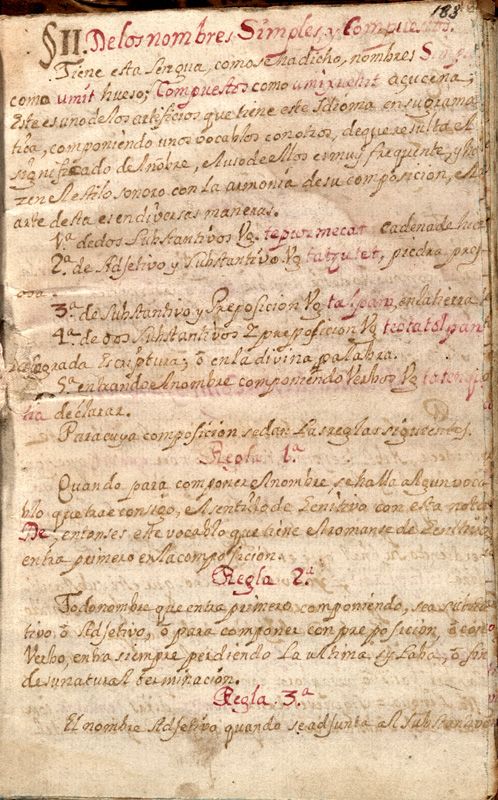 183
§II. De los nombres Simples, y Compuestos.
Tiene esta lengua, como se ha dicho, nombres
como umit hueso; Compuestos como umixuchit açucena;
Este es uno de los artificios que tiene este Idioma en su grama
tica, componiendo unos vocablos con otros, de que resulta el
significado del nôbre, el uso de ellos es muy frequente, y ha
zen el estilo sonoro con la armonia de su composicion, el
arte desta es en diversas maneras.
1ª de dos Substantivos Vg. tepuzmecat cadena de hie
2ª de Adjetivo y Substantivo Vg tatzutet, piedra preç
osa.
3ª de Substantivo y Preposicion Vg talpan, en la tierra
4ª de dos Substantivos y preposicion Vg teotatolpan
la Sagrada Escriptura; ô en la divina palabra.
5ª entrando el nombre componiendo Verbos Vg
declarar.
Para cuya composicion se dan las reglas siguientes.
Regla 1.ª
Quando para componer el nombre, se halla algun voca
blo que trae consigo, el sentido de Genitivo con esta nota
De, entonses este vocablo que tiene el romanse de Genitivo
entra primero en la composicion.
Regla 2.ª
Todo nombre que entra primero componiendo, sea substan
tivo ô Adjetivo, ô para componer con preposicion, ô con
Verbo, entra siempre perdiendo la ultima sylaba, ô fin
de su natural terminacion.
Regla 3.ª
El nombre Adjetivo quando se adjunta al Substantivo